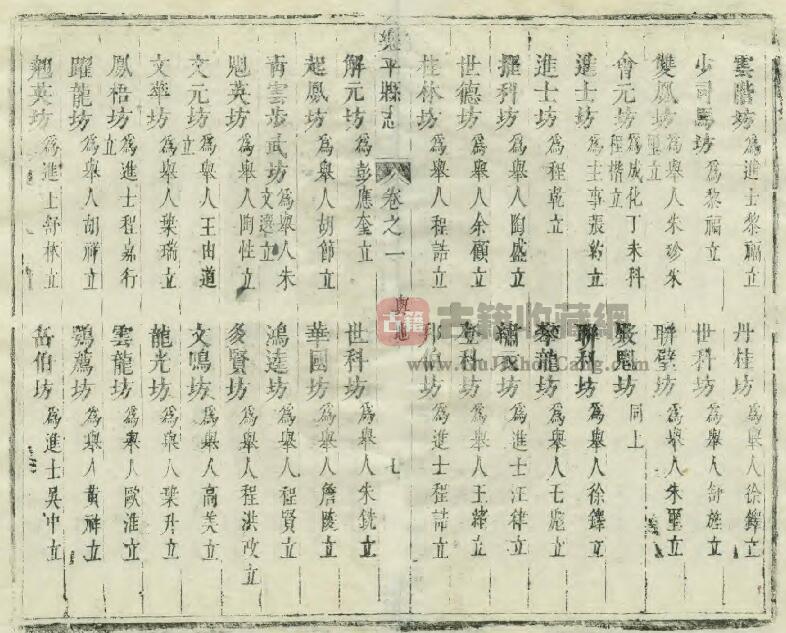 雲階坊 為進士黎福立 丹桂坊 為舉人徐鐸立
少司馬坊 為黎福立 世科坊 為舉人舒旌立
雙鳳坊 為舉人朱珍朱璽立 聯璧坊 為舉人朱璽立
會元坊 為成化丁未科程楷立 魁坊 同上
進士坊 為主事張約立 聯科坊 為舉人徐鐸立
進士坊 為程乾立 龍坊 為舉人
擢科坊 為舉人陶盛立 繡衣坊 為進士汪律立
世德坊 為舉人余顧立 登科坊 為舉人王緒立
桂林坊 為舉人程誥立 邦伯坊 為進士程誥立
樂平縣志 卷之一 七
解元坊 為彭應奎立 世科坊 為舉人朱銑立
起鳳坊 為舉人胡節立 華國坊 為舉人詹陵立
青雲步武坊 為舉人朱文選立 鴻逵坊 為舉人程賢立
魁英坊 為舉人陶性立 多賢坊 為舉人程洪改立
文元坊 為舉人王由道立 文鳴坊 為舉人高美立
文華坊 為舉人葉瑞立 龍光坊 為舉人葉升立
鳳梧坊 為進士程嘉行立 雲龍坊 為舉人歐淮立
躍龍坊 為舉人胡祥立 鶚薦坊 為舉人黃祥立
翹英坊 為進士舒林立 岳伯坊 為進士吳中立
古籍
古籍收藏網
www.GuJiShouCang.com